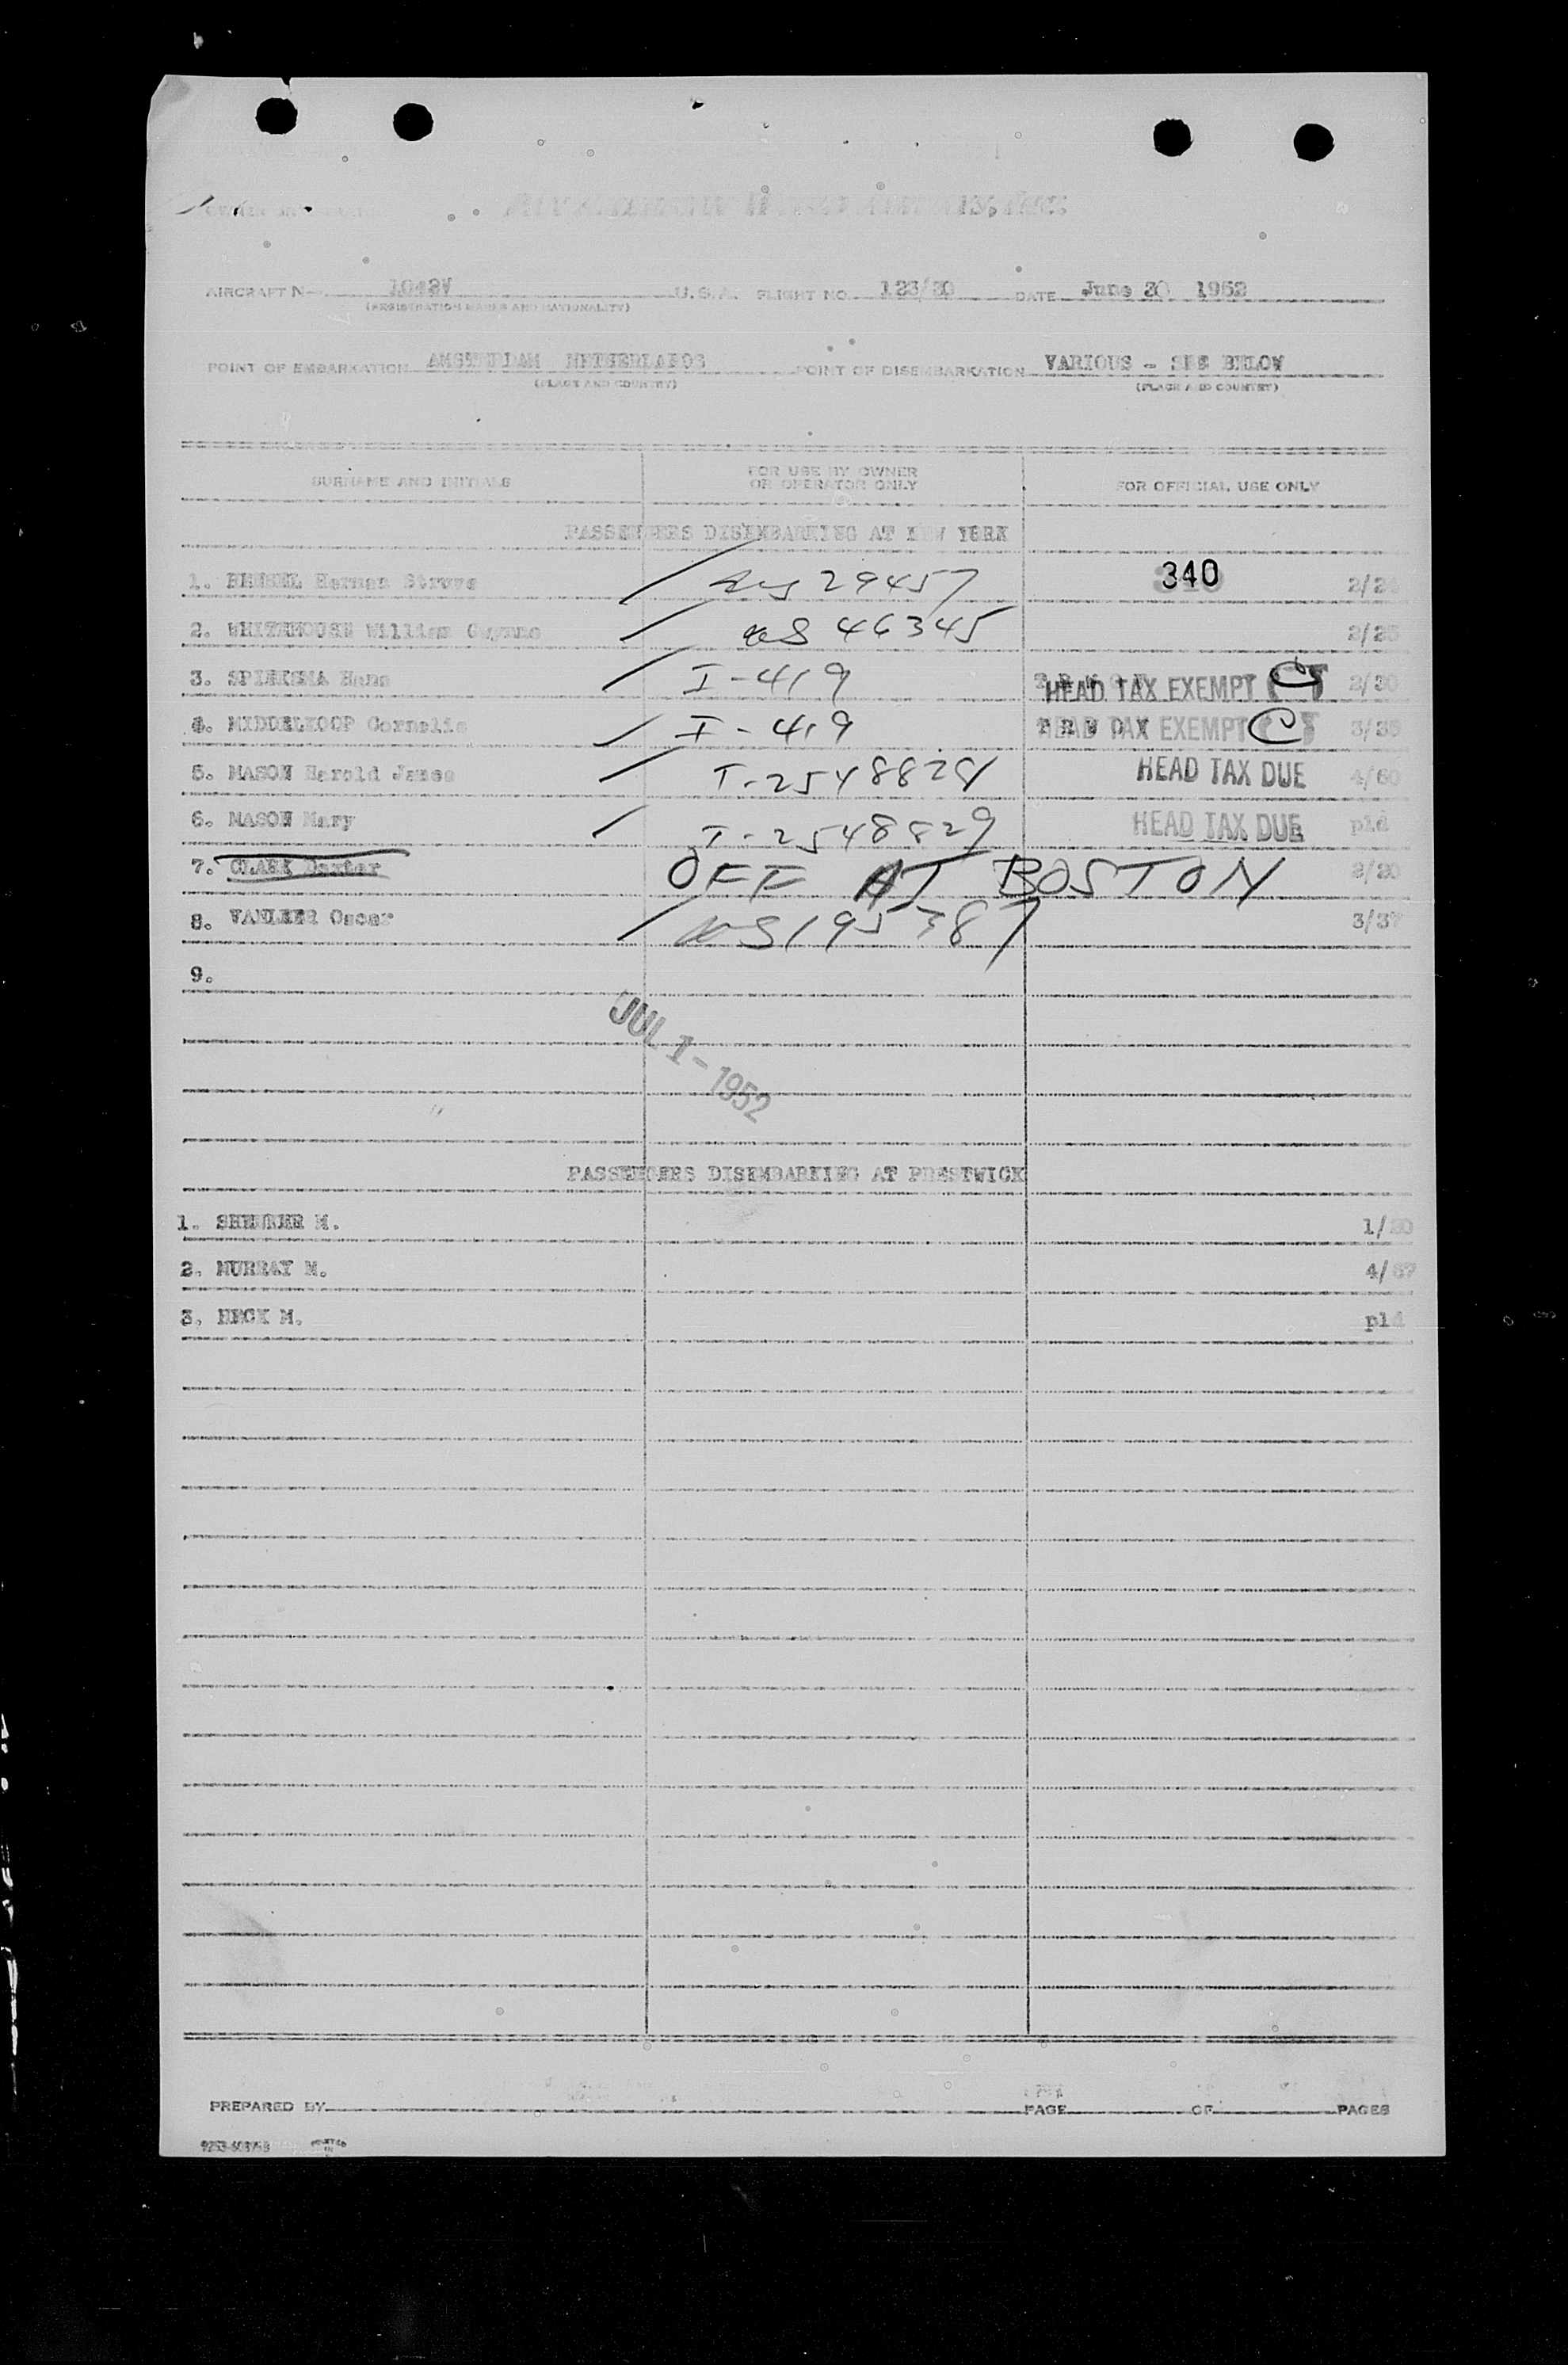 AIRCRAFT N 1042V U.S.A. FLIGHT NO. 123/30 DATE June 30 1952
(REGISTRATION MARKS AND NATIONALITY)
POINT OF EMBARKATION AMSTERDAM NETHERLANDS POINT OF DISEMBARKATION VARIOUS - SEE BELOW
(PLACE AND COUNTRY) (PLACE AND COUNTRY)
SURNAME AND INITIALS FOR USE BY OWNER OR OPERATOR ONLY FOR OFFICIAL USE ONLY
PASSENGERS DISEMBARKING AT NEW YORK
1. HENSEL Herman Struve 29457 340
2. WHITEHOUSE William 46345
3. Hans I-419 HEAD TAX EXEMPT CT 2/30
4. MIDDELKOOP Cornelis I-419 HEAD TAX EXEMPT CT
5. MASON Harold James I-2548828 HEAD TAX DUE 4/60
6. MASON Mary I-2548829 HEAD TAX DUE pld
7. CLARK OFF AT BOSTON
8. Oscar 195387 3/37
9.
JUL 1-1952
PASSENGERS DISEMBARKING AT PRESTWICK
1. M. 1/
2. MURRAY M. 4/
3. HECK M. pld
PREPARED BY PAGE OF PAGES